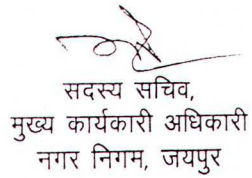 सदस्य सचिव,
मुख्य कार्यकारी अधिकारी
नगर निगम, जयपुर